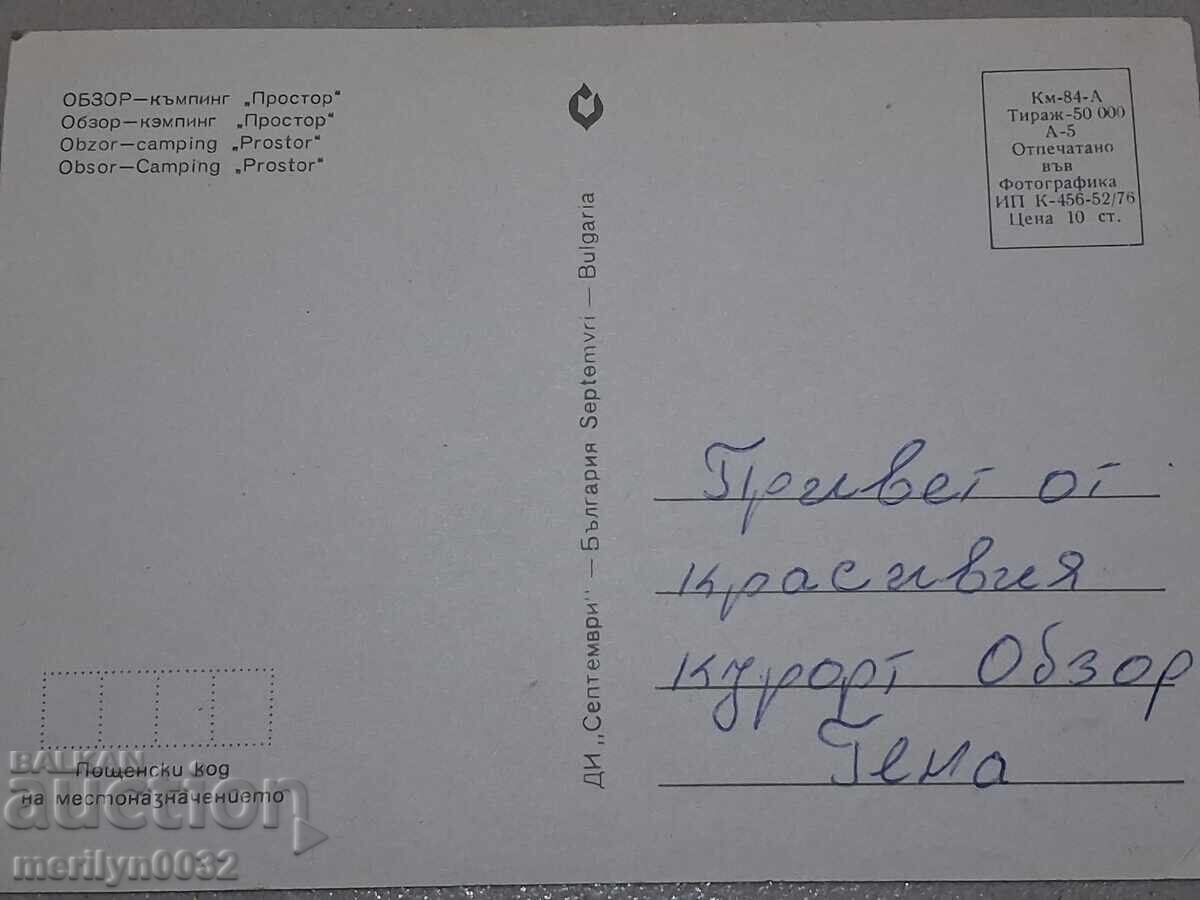 ОБЗОР—къмпинг „Простор"
Обзор—кэмпинг „Простор"
Obzor—camping „Prostor"
Obsor—Camping „Prostor"
Км-84-А
Тираж-50 000
А-5
Отпечатано
във
Фотографика
ИП К-456-52/76
Цена 10 ст.
ДИ „Септември" — България Septemvri — Bulgaria
Привет от
красивия
курорт Обзор
Гена
Пощенски код
на местоназначението
BALKAN
auction
merilyn0032